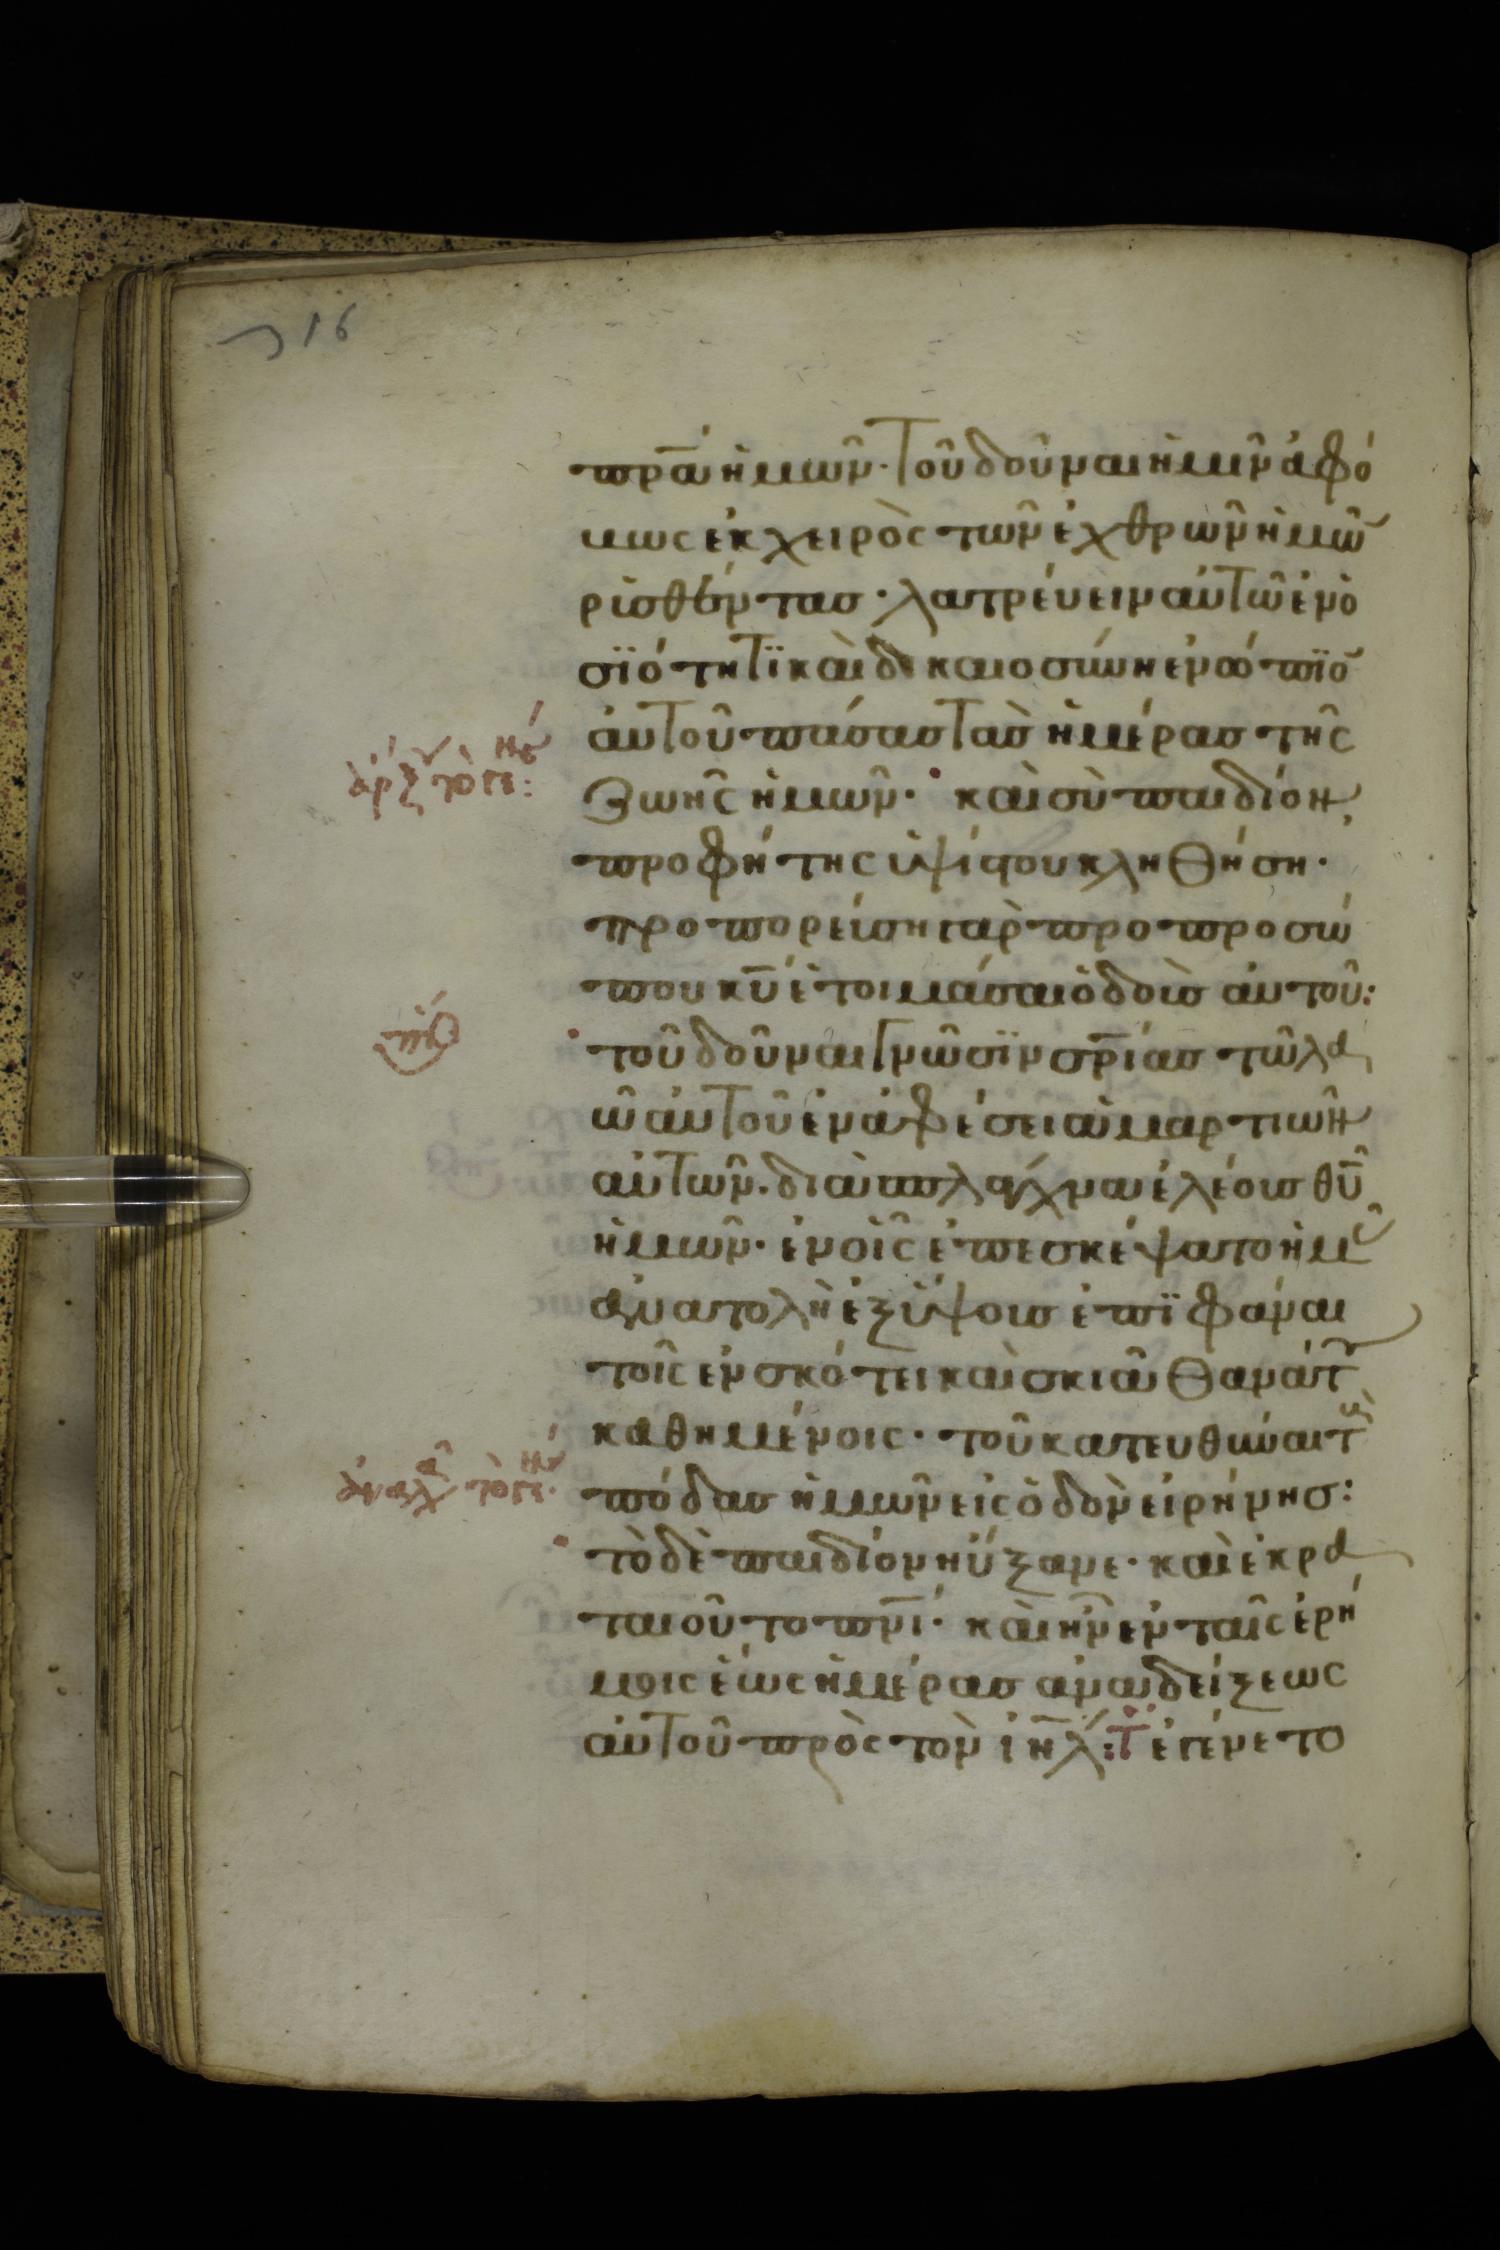 716
πρ̅α ἡμῶν· Τοῦ δοῦναι ἡμῖν ἀφό
μως ἐκ χειρὸς τῶν ἐχθρῶν ἡμῶ
ρισθέντασ· λατρεύειν αὐτῶ ἐν ὁ
σϊότητϊ καὶ δικαιοσύνη ἐνώπϊο
αὐτοῦ πάσασ τὰσ ἡμέρασ τῆς
ζωῆς ἡμῶν· καὶ σὺ παιδίον
προφήτης ὑψίστου κληθήση·
προπορεύση γὰρ προ προσώ
που κ̅υ ἑτοιμάσαι ὁδοὺσ αὐτοῦ:
τοῦ δοῦναι γνῶσϊν σρ̅ίασ τῶ λα
ῶ αὐτοῦ ἐν ἀφέσει ἁμαρτιῶν
αὐτῶν. διὰ σπλάγχνα ἐλέουσ θ̅υ
ἡμῶν· ἐν οἷς ἐπεσκέψατο ἡμ
ἀνατολὴ ἐξ ὕψουσ ἐπϊφάναι
τοῖς ἐν σκότει καὶ σκιᾶ θανάτ
καθημένοις· τοῦ κατευθύναι τ
πόδασ ἡμῶν εἰς ὁδὸν εἰρήνησ:
τὸ δὲ παιδίον ηὔξανε· καὶ ἐκρα
ταιοῦτο πν̅ι· καὶ ἦν ἐν ταῖς ἐρή
μοις ἕως ἡμέρασ ἀναδείξεως
αὐτοῦ πρὸς τὸν ι̅η̅λ: ἐγένετο